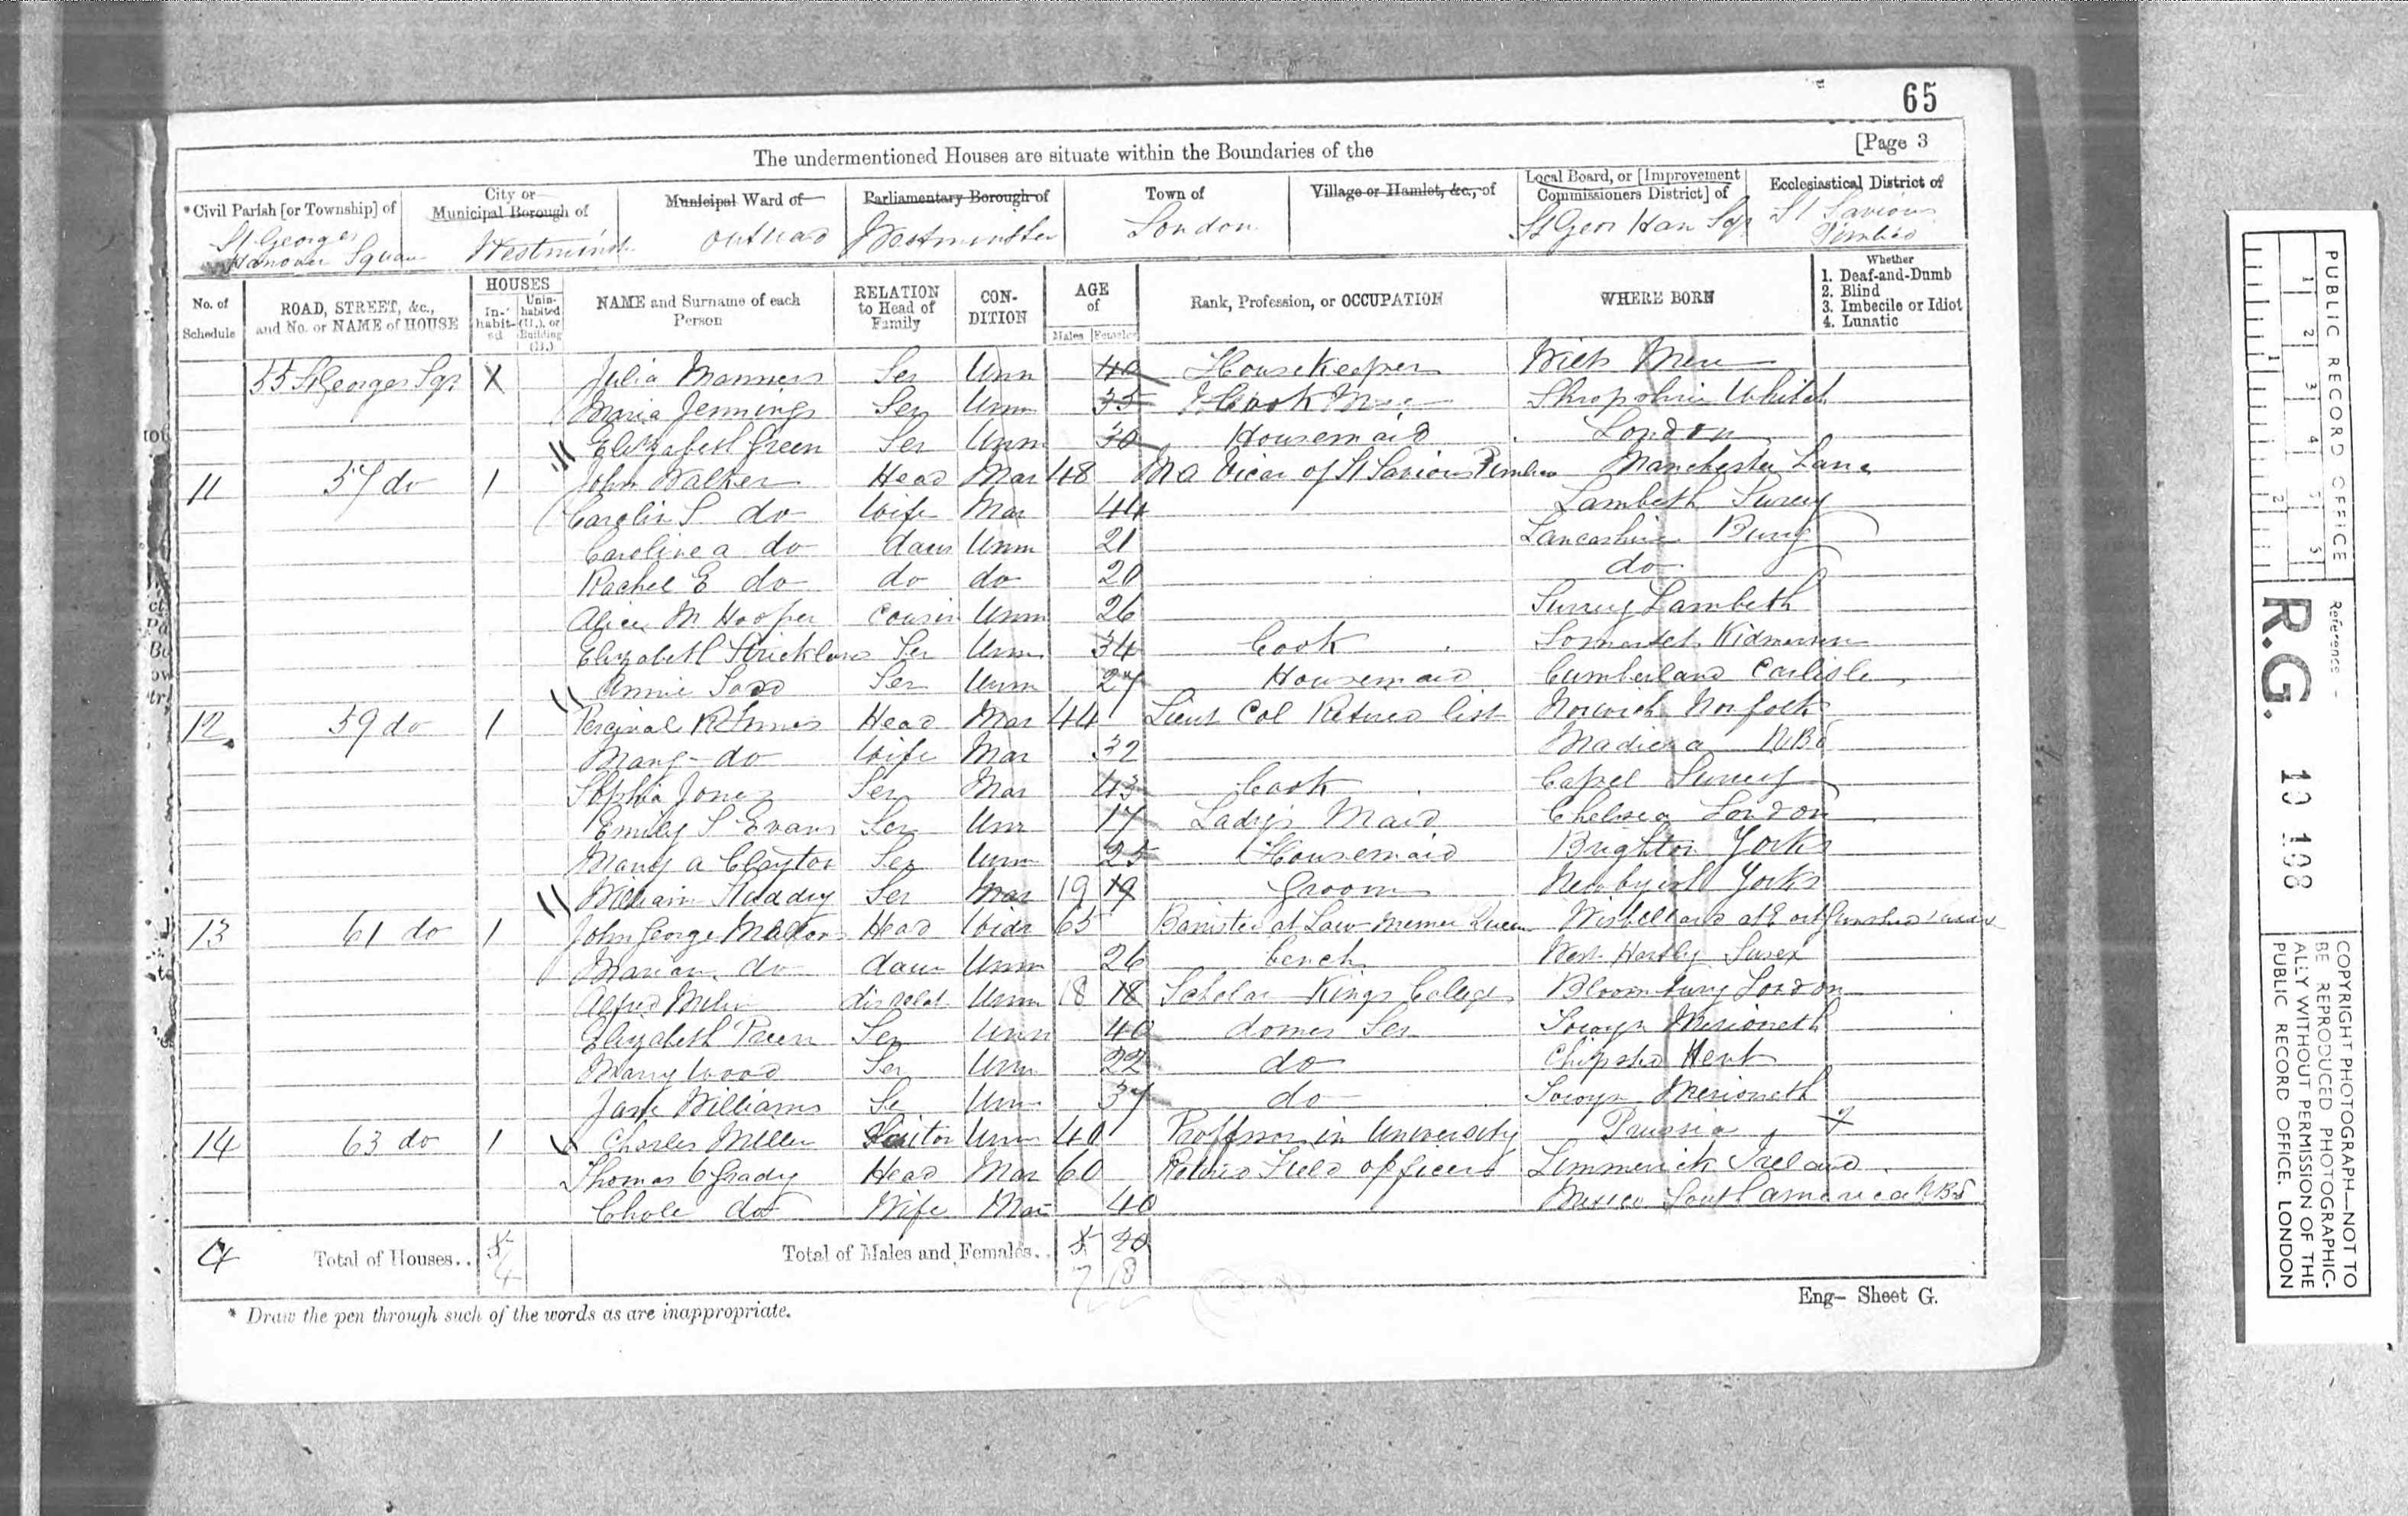 65
[Page 3
The undermentioned Houses are situate within the Boundaries of the
*Civil Parish [or Township] of
St Georges
Hanover Square
City or
Municipal Borough of
Westminst
Municipal Ward of
outward
Parliamentary Borough of
Westminster
Town of
London
Village or Hamlet, &c., of
Local Board, or [Improvement
Commissioners District] of
St Geor Han Sqr
Ecclesiastical District of
St Saviours
Pimlico
No. of
Schedule
ROAD, STREET, &c.,
and No. or NAME of HOUSE
HOUSES
In-
habit-
ed
Unin-
habited
(U.), or
Building
(B.)
NAME and Surname of each
Person
RELATION
to Head of
Family
CON-
DITION
AGE
of
Males Females
Rank, Profession, or OCCUPATION
WHERE BORN
Whether
1. Deaf-and-Dumb
2. Blind
3. Imbecile or Idiot
4. Lunatic
55 St Georges Sqr X Julia Manners Ser Unm 40 Housekeeper
Maria Jennings Ser Unm 35 Cook Shropshire
Elizabeth Green Ser Unm 30 Housemaid London
11 57 do 1 John Walker Head Mar 48 M A Vicar of St Saviours Pimlico Manchester Lanc
Carolin S do Wife Mar 44 Lambeth Surrey
Caroline a do daur Unm 21 Lancashire Bury
Rachel E do do do 20 do
Alice M Hooper Cousin Unm 26 Surrey Lambeth
Elizabeth Ser Unm 34 Cook Somerset
Annie Ser Unm 27 Housemaid Cumberland Carlisle
12 59 do 1 Percival Head Mar 44 Lieut Col Retired list Norwich Norfolk
Mary do Wife Mar 32 Madiera
Sophia Jones Ser Mar 43 Cook Capel Surrey
Emily S Evans Ser Unr 17 Ladys Maid Chelsea London
Mary a Clayton Ser Unm 25 Housemaid Brighton Yorks
William Ser Mar 19 19 Groom Yorks
13 61 do 1 John George Head Widr 65 Barrister at Law
Marian do daur Unm 26 bench
Alfred Ser Unm 18 18 Scholar Kings College Bloomsbury London
Elizabeth Ser Unm 40 domes Ser Merioneth
Mary Wood Ser Unm 22 do Kent
Jane Williams Se Unm 37 do Merioneth
14 63 do 1 Charles Miller Visitor Unm 40 Proffssor in University Prussia
Thomas O Grady Head Mar 60 Retired Field officers Limmerick Ireland
Chole do Wife Mar 40 Mexico South america
4 Total of Houses.. 4
Total of Males and Females.. 5 20
7 18
* Draw the pen through such of the words as are inappropriate.
Eng- Sheet G.
PUBLIC RECORD OFFICE
1 2 3 4 5
1 2
Reference -
R.G. 10 188
COPYRIGHT PHOTOGRAPH—NOT TO
BE REPRODUCED PHOTOGRAPHIC-
ALLY WITHOUT PERMISSION OF THE
PUBLIC RECORD OFFICE, LONDON